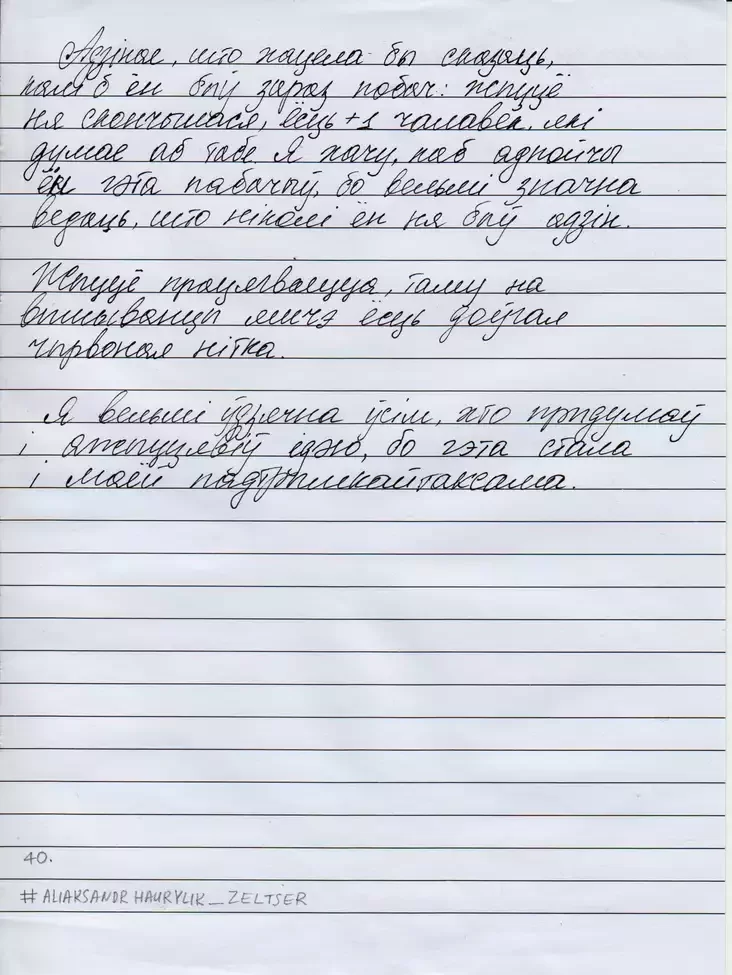 Адзінае, што хацела бы сказаць,
калі б ён быў зараз побач: жыццё
ня скончылася, ёсць +1 чалавек, які
думае аб табе. Я хачу, каб аднойчы
ён гэта пабачыў, бо вельмі значна
ведаць, што ніколі ён ня быў адзін.
Жыццё працягваецца, таму на
вышыванцы яшчэ ёсць доўгая
чырвоная нітка.
Я вельмі ўдзячна ўсім, хто прыдумаў
і ажыццявіў ідэю, бо гэта стала
і маёй падтрымкай таксама.
40.
#ALIAKSANDRHAURYLIK_ZELTSER